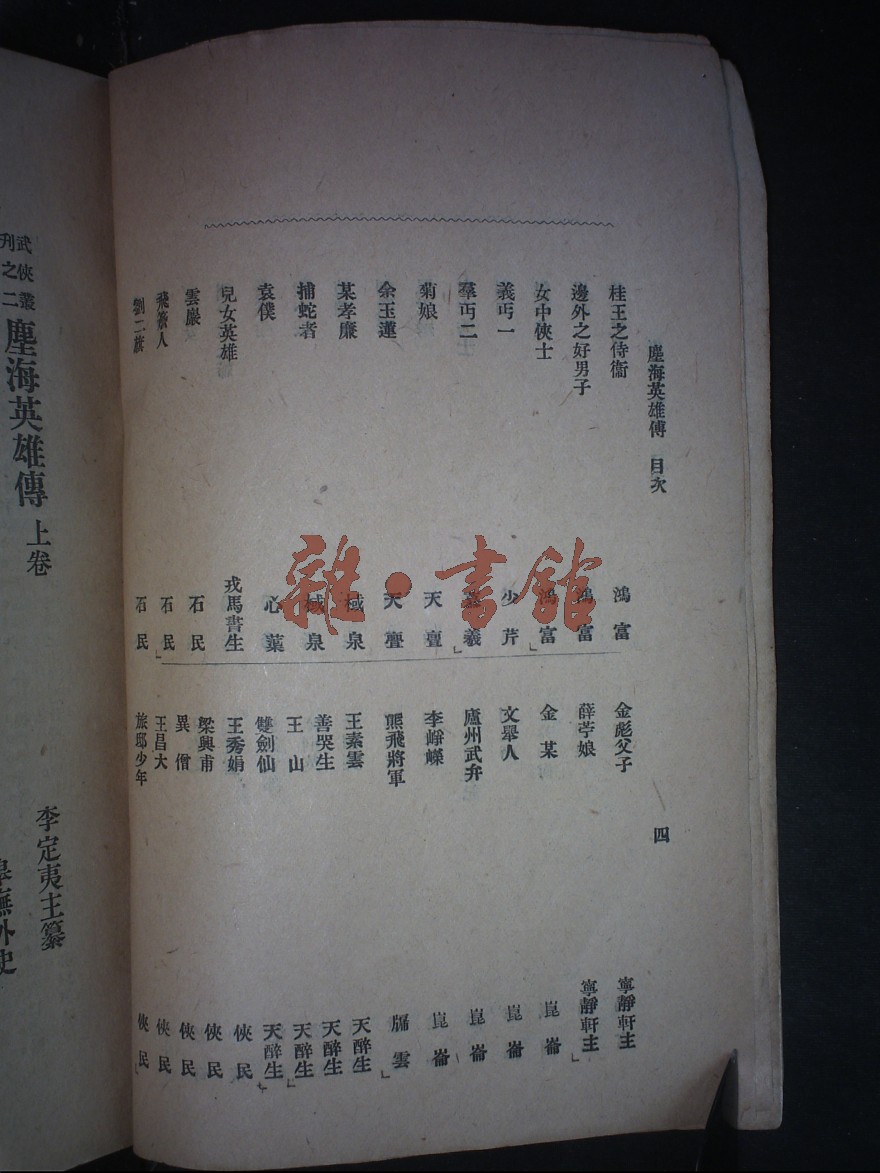 塵海英雄傳 目次 四
桂王之侍衞 鴻富
邊外之好男子 鴻富
女中俠士 鴻富
義丐一 少芹
羣丐二 義
菊娘 天亶
余玉蓮 天亶
某孝廉 棫泉
捕蛇者 棫泉
袁僕 心蕖
兒女英雄 戎馬書生
雲巖 石民
飛簽人 石民
劉二旗 石民
金彪父子 寧靜軒主
薛苧娘 寧靜軒主
金某 崑崙
文舉人 崑崙
廬州武弁 崑崙
李崢嶸 崑崙
熊飛將軍 雲
王素雲 天醉生
善哭生 天醉生
王山 天醉生
雙劍仙 天醉生
王秀娟 俠民
梁興甫 俠民
異僧 俠民
王昌大 俠民
旅邸少年 俠民
雜·書館
武俠叢刊之二
塵海英雄傳 上卷
李定夷主纂
撫外史